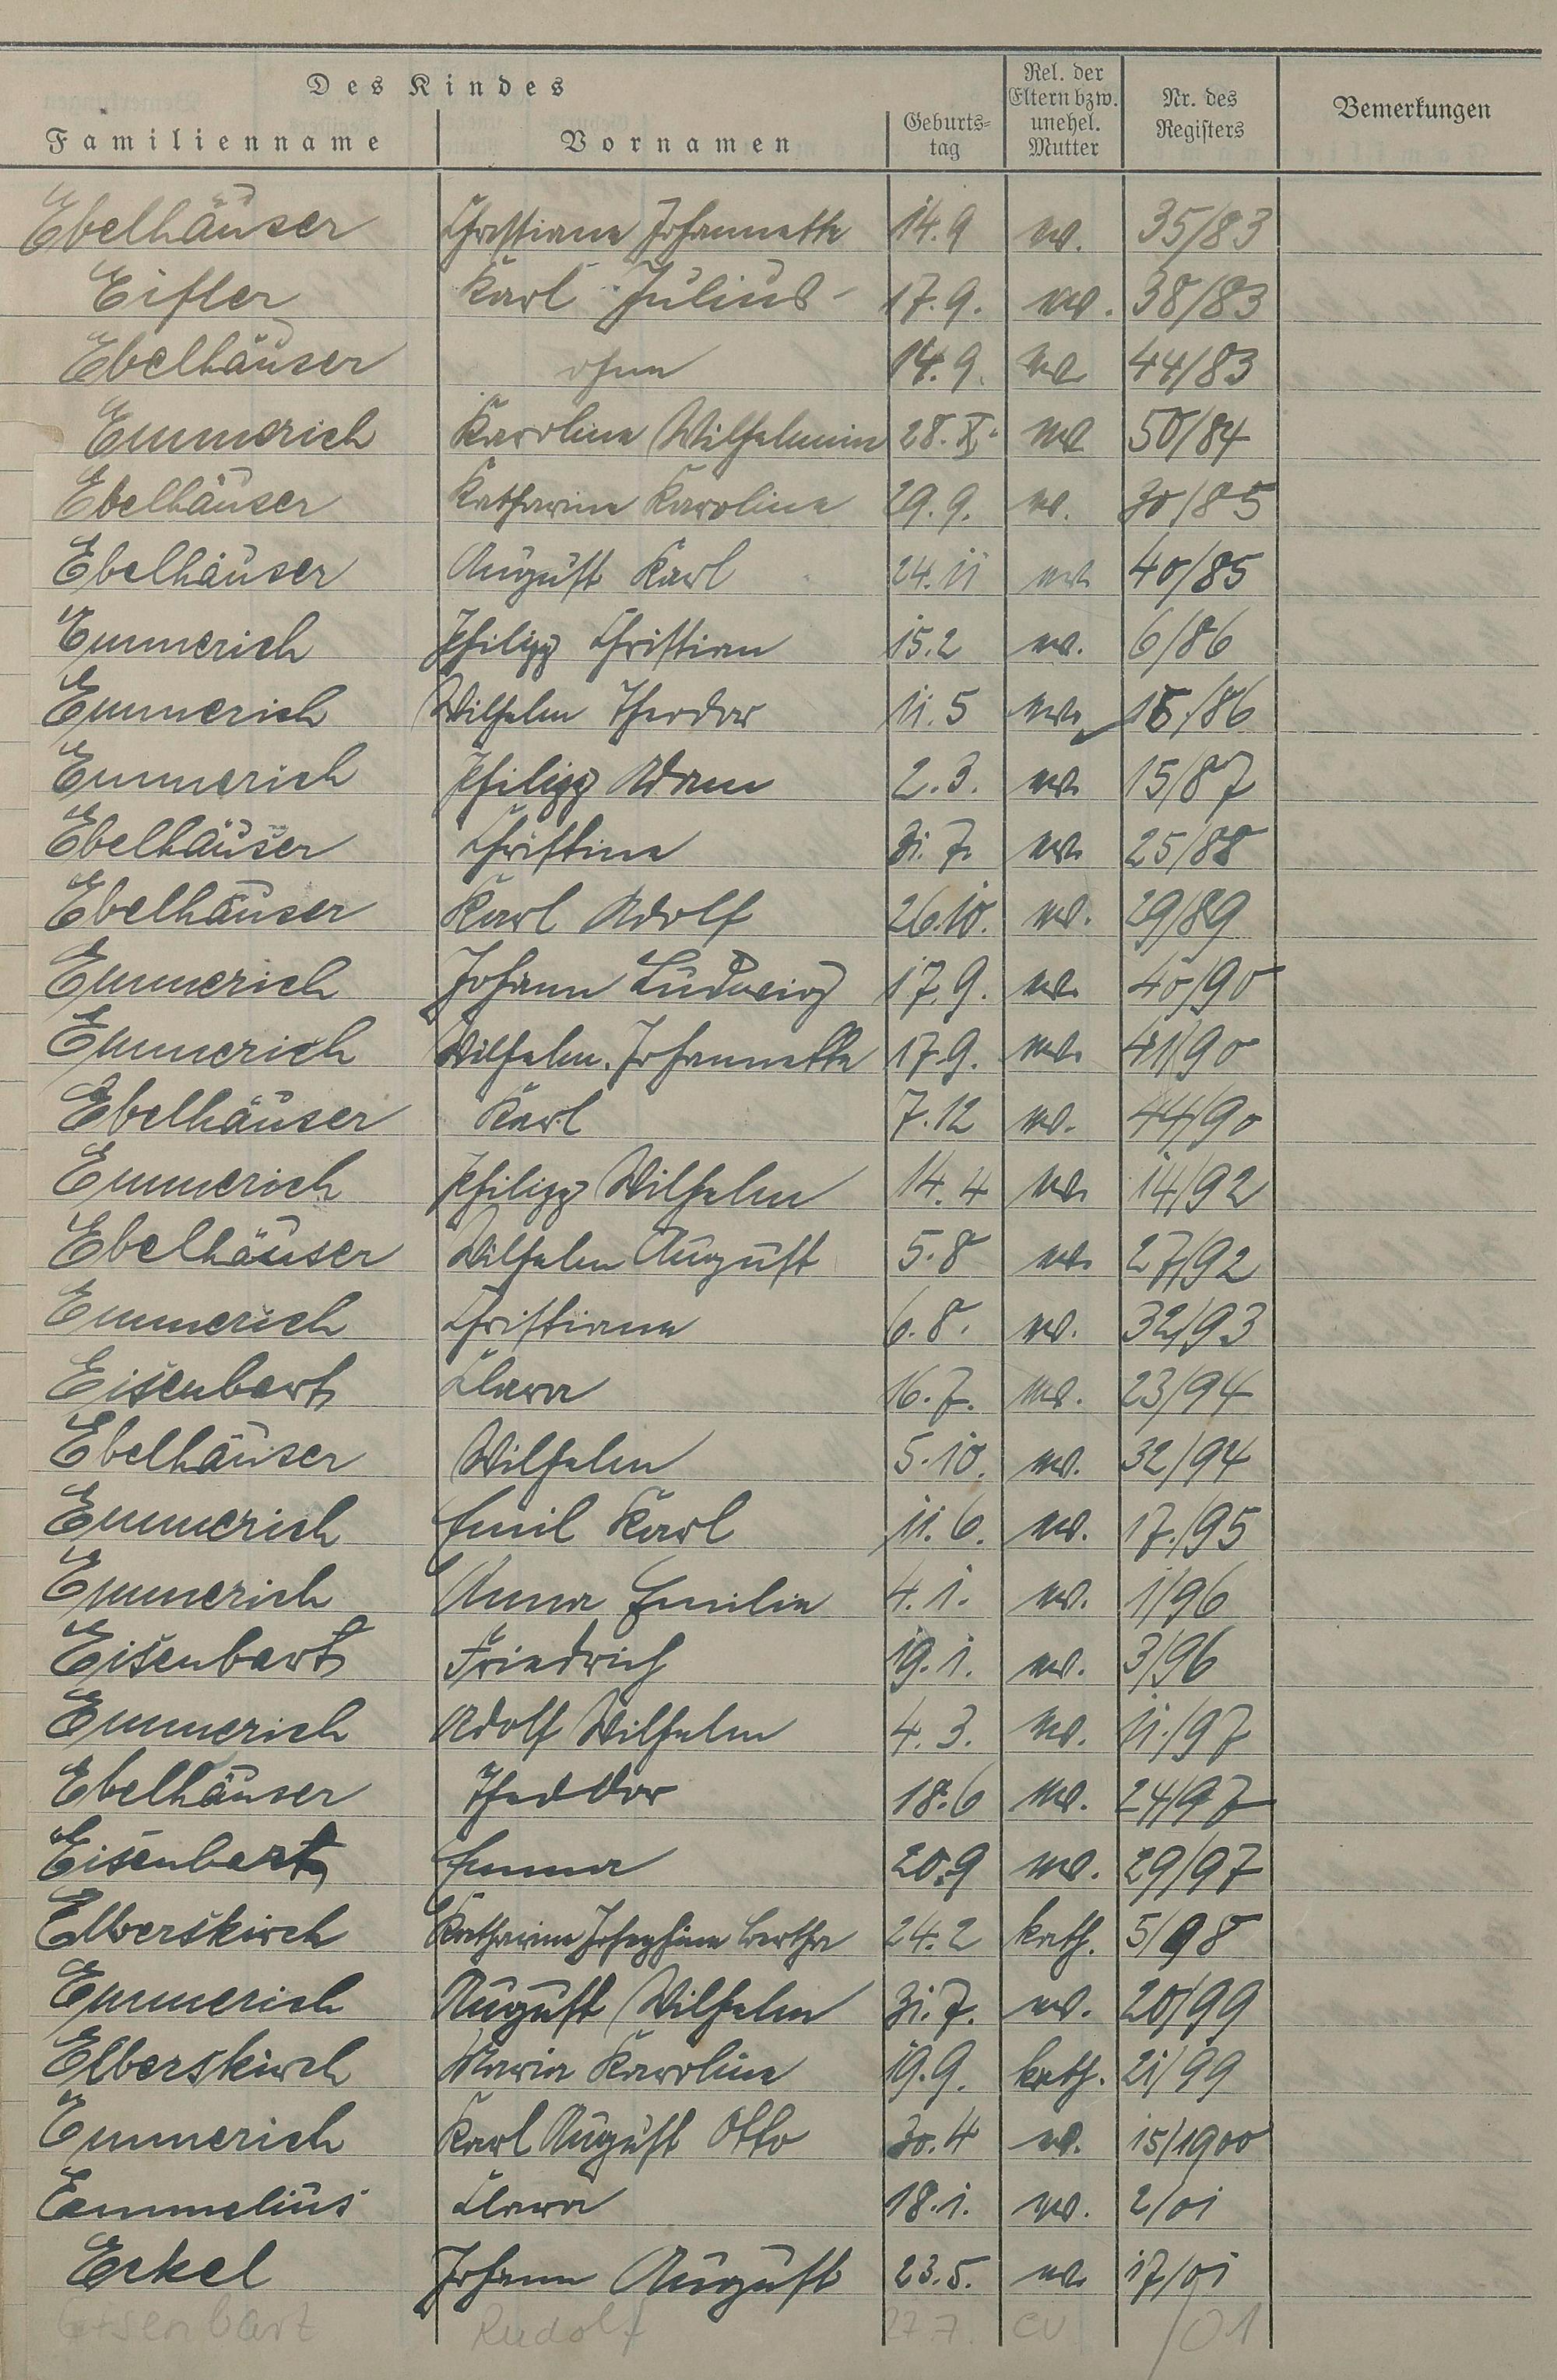 Des Kindes
Familienname Vornamen Geburts-tag Rel. der Eltern bzw. unehel. Mutter Nr. des Registers Bemerkungen
Ebelhäuser Christiane Johannette 14.9 ev. 35/83
Eifler Karl Julius 17.9. ev. 38/83
Ebelhäuser ohne 14.9. ev 44/83
Emmerich Karoline Wilhelmine 28.X. ev 50/84
Ebelhäuser Katharine Karoline 29.9. ev. 30/85
Ebelhäuser August Karl 24.11 ev 40/85
Emmerich Philipp Christian 15.2 ev. 6/86
Emmerich Wilhelm Theodor 11.5 ev. /86
Emmerich Philipp Adam 2.3. ev. 15/87
Ebelhäuser Christine 31.7. ev. 25/88
Ebelhäuser Karl Adolf 26.10. ev. 29/89
Emmerich Johann Ludwig 17.9. ev. 40/90
Emmerich Wilhelm. Johannette 17.9. ev. 41/90
Ebelhäuser Karl 7.12 ev. 44/90
Emmerich Philipp Wilhelm 14.4 ev. 14/92
Ebelhäuser Wilhelm August 5.8 ev. 27/92
Emmerich Christiane 6.8. ev. 32/93
Eisenbart Clara 16.7. ev. 23/94
Ebelhäuser Wilhelm 5.10. ev. 32/94
Emmerich Emil Karl 11.6. ev. 17./95
Emmerich Anna Emilie 4.1. ev. 1/96
Eisenbart Friedrich 19.1. ev. 3/96
Emmerich Adolf Wilhelm 4.3. ev. 11./97
Ebelhäuser Theodor 18.6 ev. 24/97
Eisenbart Emma 20.9 ev. 29/97
Elberskirch Katharina Josephine Bertha 24.2 kath. 5/98
Emmerich August Wilhelm 31.7. ev. 20/99
Elberskirch Maria Karoline 19.9. kath. 21/99
Emmerich Karl August Otto 30.4 ev. 15/1900
Emmelius Clara 18.1. ev. 2/01
Erkel Johann August 23.5. ev. 17/01
Eisenbart Rudolf 27.7. ev /01